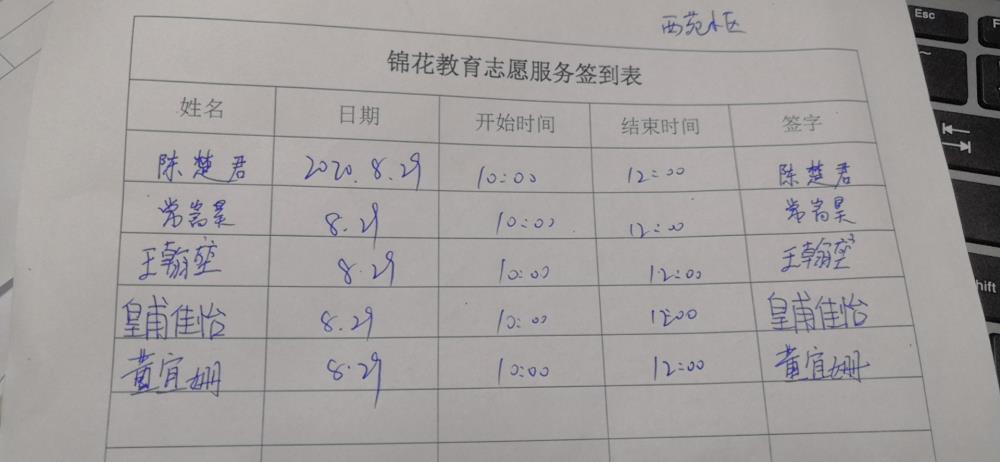 西苑小区
锦花教育志愿服务签到表
姓名 日期 开始时间 结束时间 签字
陈楚君 2020.8.29 10:00 12:00 陈楚君
常嵩昊 8.29 10:00 12:00 常嵩昊
王翰 8.29 10:00 12:00 王翰
皇甫佳怡 8.29 10:00 12:00 皇甫佳怡
黄宜姗 8.29 10:00 12:00 黄宜姗
Esc